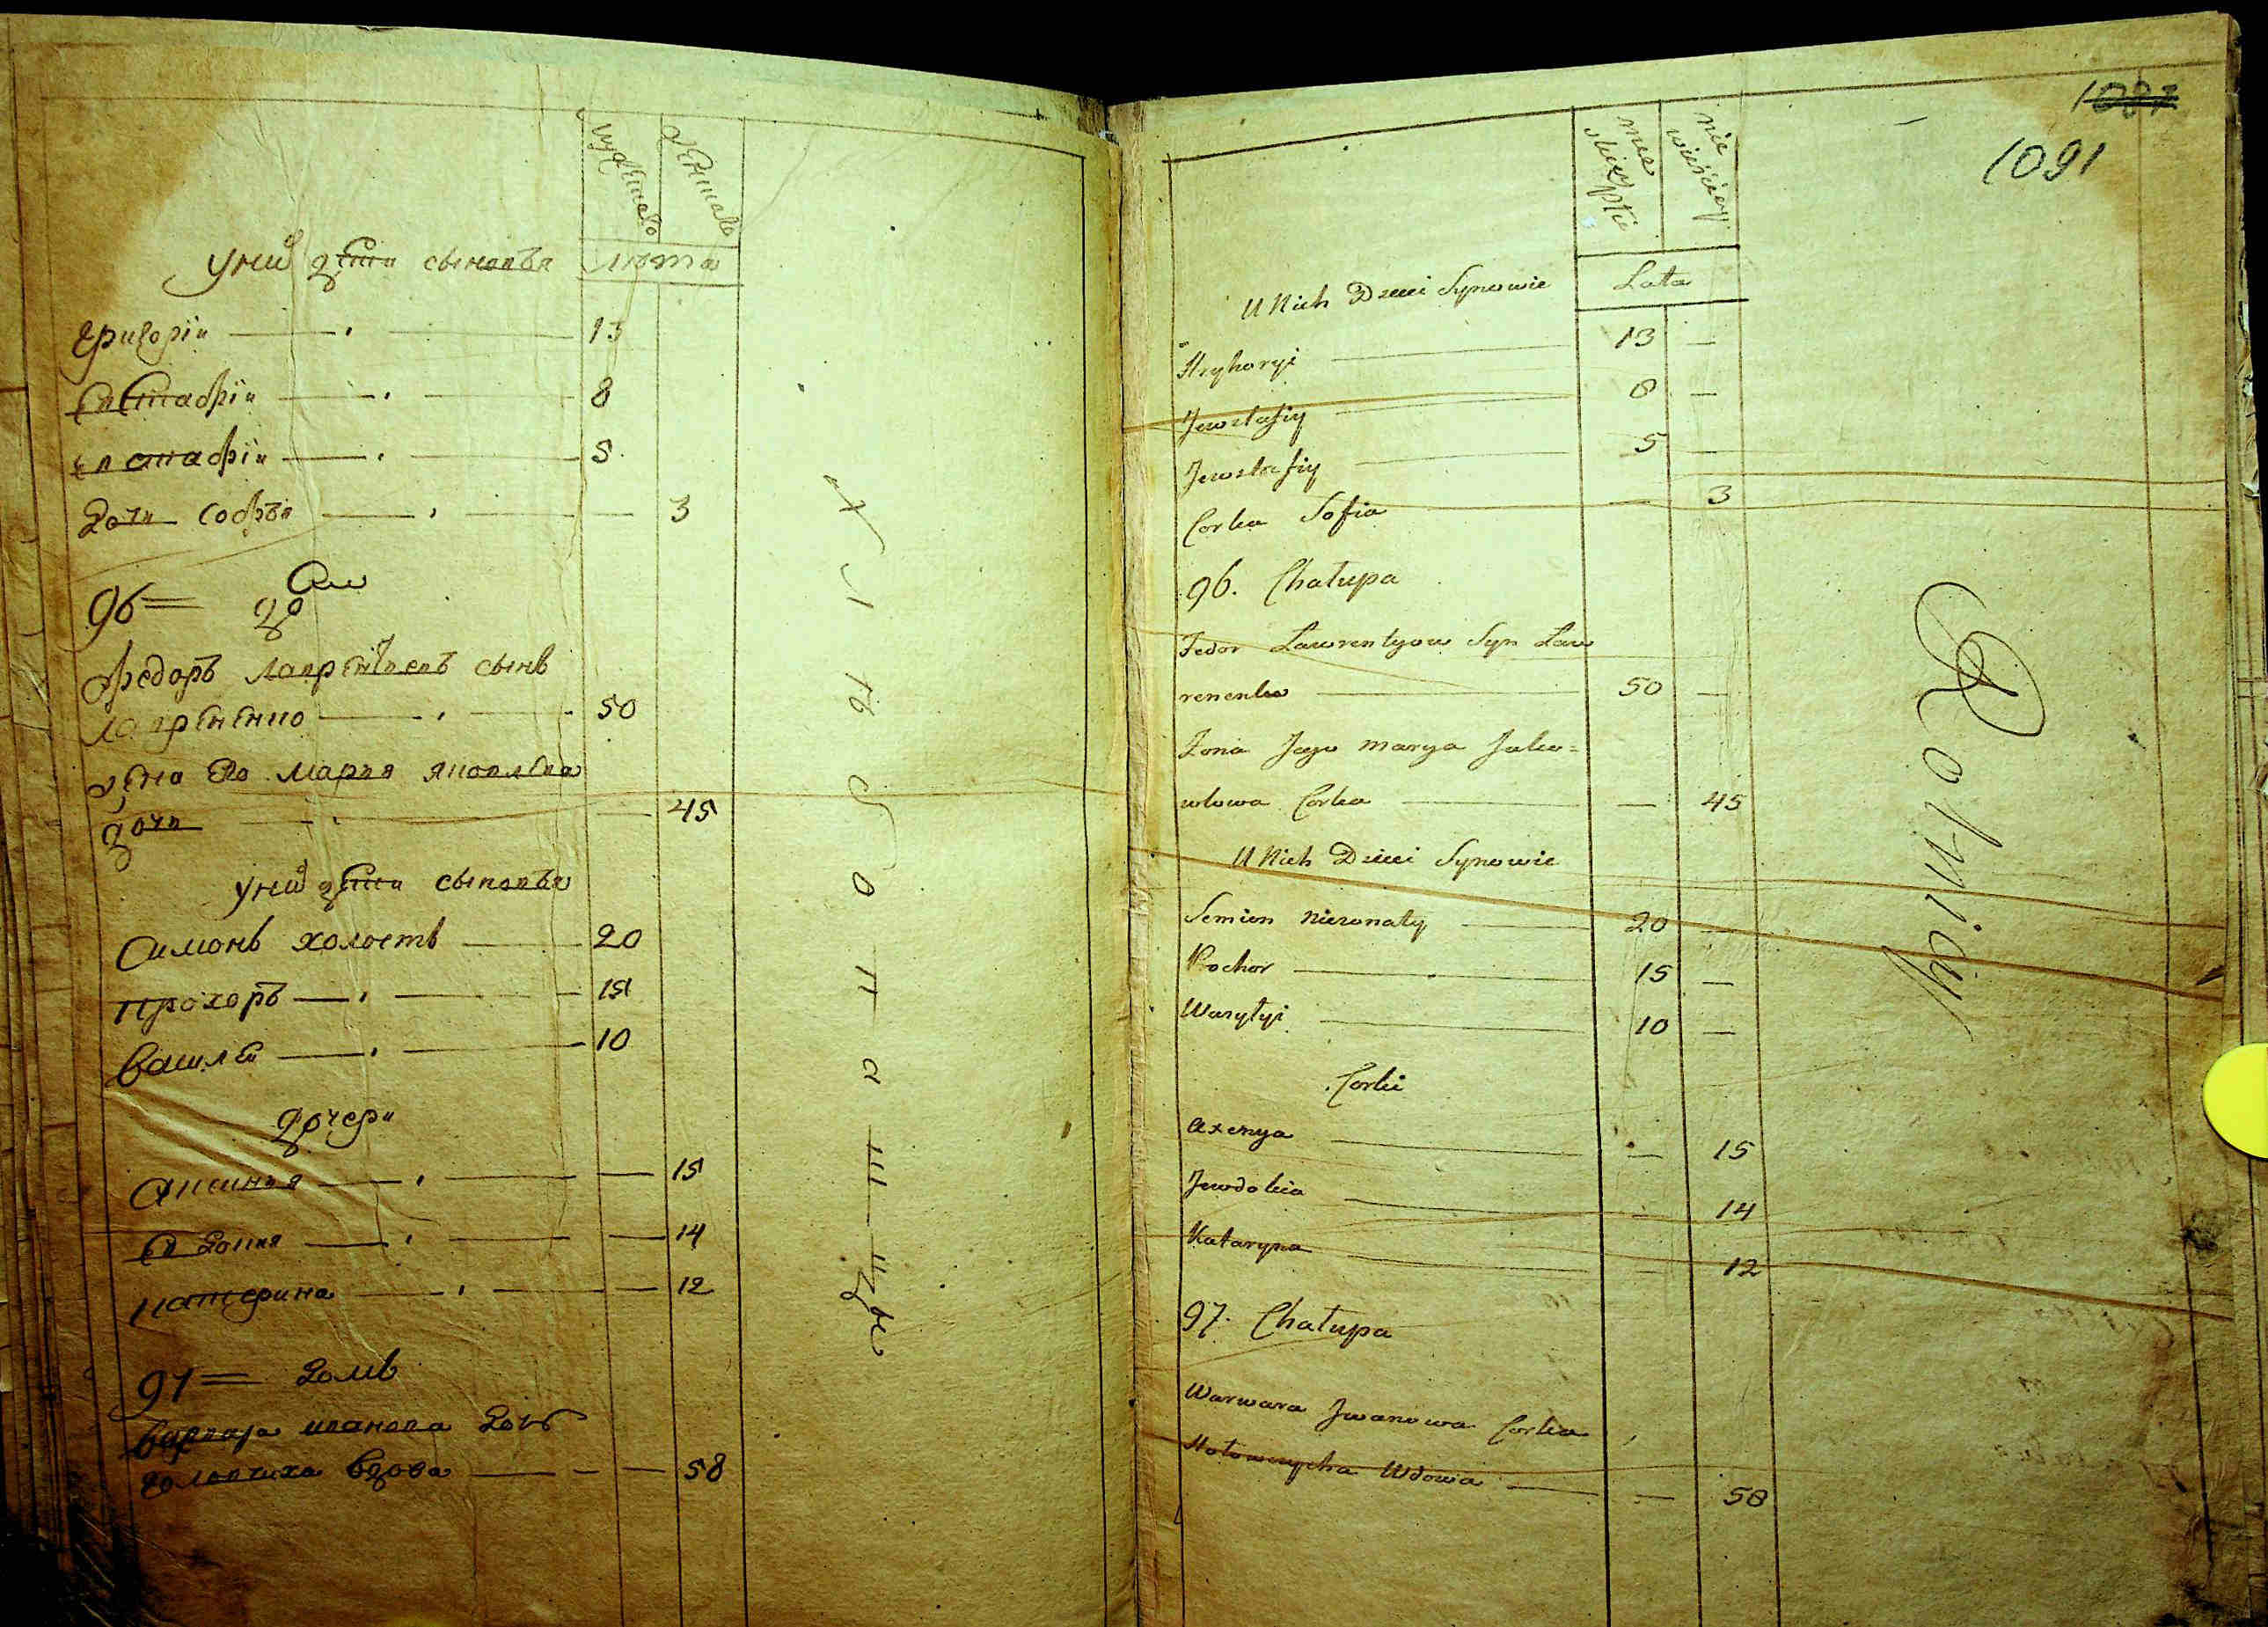 мужеска
женска
У них дети сыновья
лета
Григорий 13
Евстафий 8
Евстафий 5
дочь Софья 3
96 = дом
Федор Лаврентиев сынъ
Лавренко 50
жена его Марья Яковлева
дочь 45
У них дети сыновья
Симонъ холостъ 20
Прохоръ 15
Василей 10
дочери
Аксинья 15
Евдокия 14
Катерина 12
97 = домъ
Варвара Иванова дочь
Головчиха вдова 58
хлебопашцы
1091
męs
kiey płci
nie
wieściey
Lata
U Nich Dzieci Synowie
Hryhoryi — 13 —
Jewstafiy — 8 —
Jewstafiy — 5 —
Corka Sofia — — 3
96. Chałupa
Fedor Lawrentyow Syn Law
renenko — 50 —
Żona Jego Marya Jako=
wlowa Corka — — 45
U Nich Dzieci Synowie
Semion Nieżonaty — 20 —
Prochor — 15 —
Wasylyi — 10 —
Corki
Axenya — — 15
Jewdokia — — 14
Kataryna — — 12
97. Chałupa
Warwara Jwanowa Corka
Hołowczycha Wdowa — — 58
Rolnicy